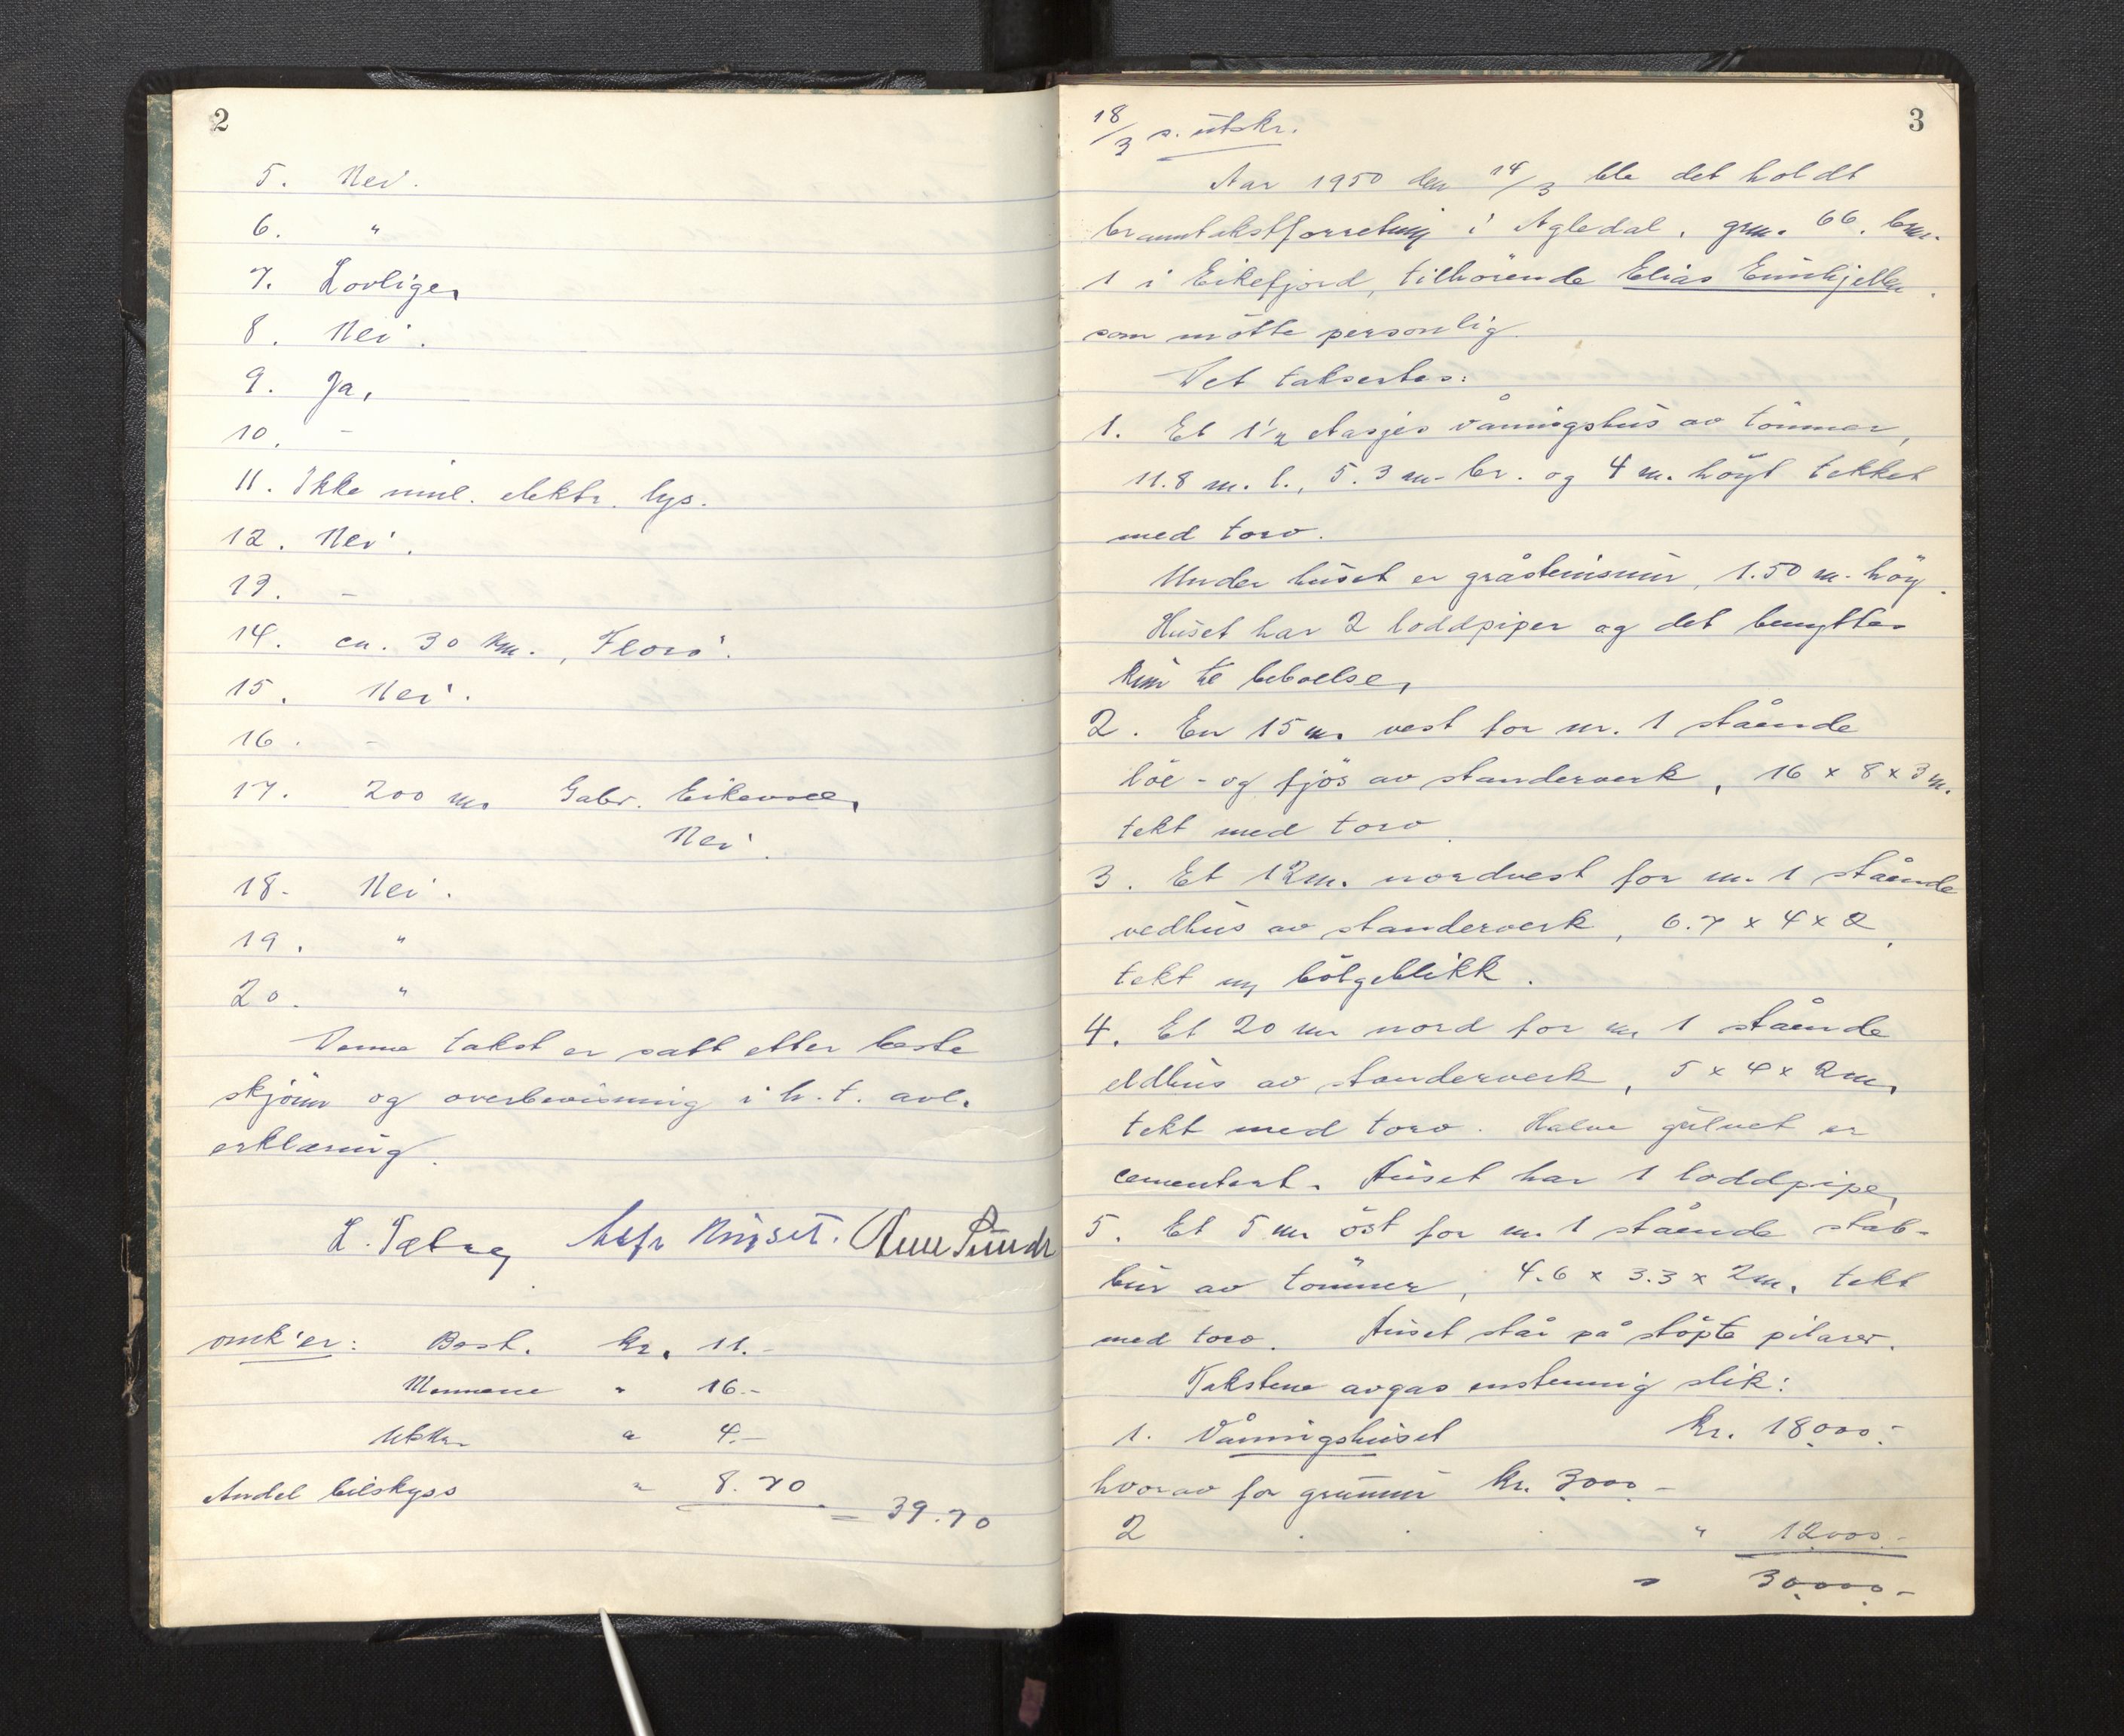 2
5. Nei.
6. "
7. Lovlige,
8. Nei.
9. Ja,
10. -
11. Ikke innl. elektr. lys.
12. Nei.
13. -
14. ca. 30 km., Florø.
15. Nei.
16. -
17. 200 m. Gabr. Eikevoll,
Nei.
18. Nei.
19. "
20. "
Denne takst er satt etter beste
skjönn og overbevisning i h. t. avl.
erklæring.
L. Sæbrey
omk'er: Best. kr. 11.-
Mennene " 16.-
Utskr. " 4.-
Andel bilskyss " 8.70 = 39.70
3
18/3 s. utskr.
Aar 1950 den 14/3 ble det holdt
branntakstforretning i Agledal, gnr. 66, bnr.
1 i Eikefjord, tilhörende Elias Eimhjellen,
som mötte personlig.
Det takseртes:
1. Et 1 1/2 etasjes våningshus av tömmer,
11.8 m. l., 5.3 m. br. og 4 m. höyt tekket
med torv.
Under huset er gråsteinsmur, 1.50 m. höy.
Huset har 2 loddpiper og det benyttes
kun til beboelse,
2. En 15 m. vest for nr. 1 stående
löe- og fjös av standerverk, 16 x 8 x 3 m.
tekt med torv.
3. Et 12 m. nordvest for nr. 1 stående
vedhus av standerverk, 6.7 x 4 x 2,
tekt m/ bölgeblikk.
4. Et 20 m. nord for nr. 1 stående
eldhus av standerverk, 5 x 4 x 2 m,
tekt med torv. Halve gulvet er
cementert. Huset har 1 loddpipe,
5. Et 5 m. öst for nr. 1 stående stab-
bur av tömmer, 4.6 x 3.3 x 2 m. tekt
med torv. Huset står på stöpte pilarer.
Takstene avgas enstemmig slik:
1. Våningshuset kr. 18000.-
hvorav for grunnmur kr. 3000.-
2 . . . " 12000.-
" 30000.-